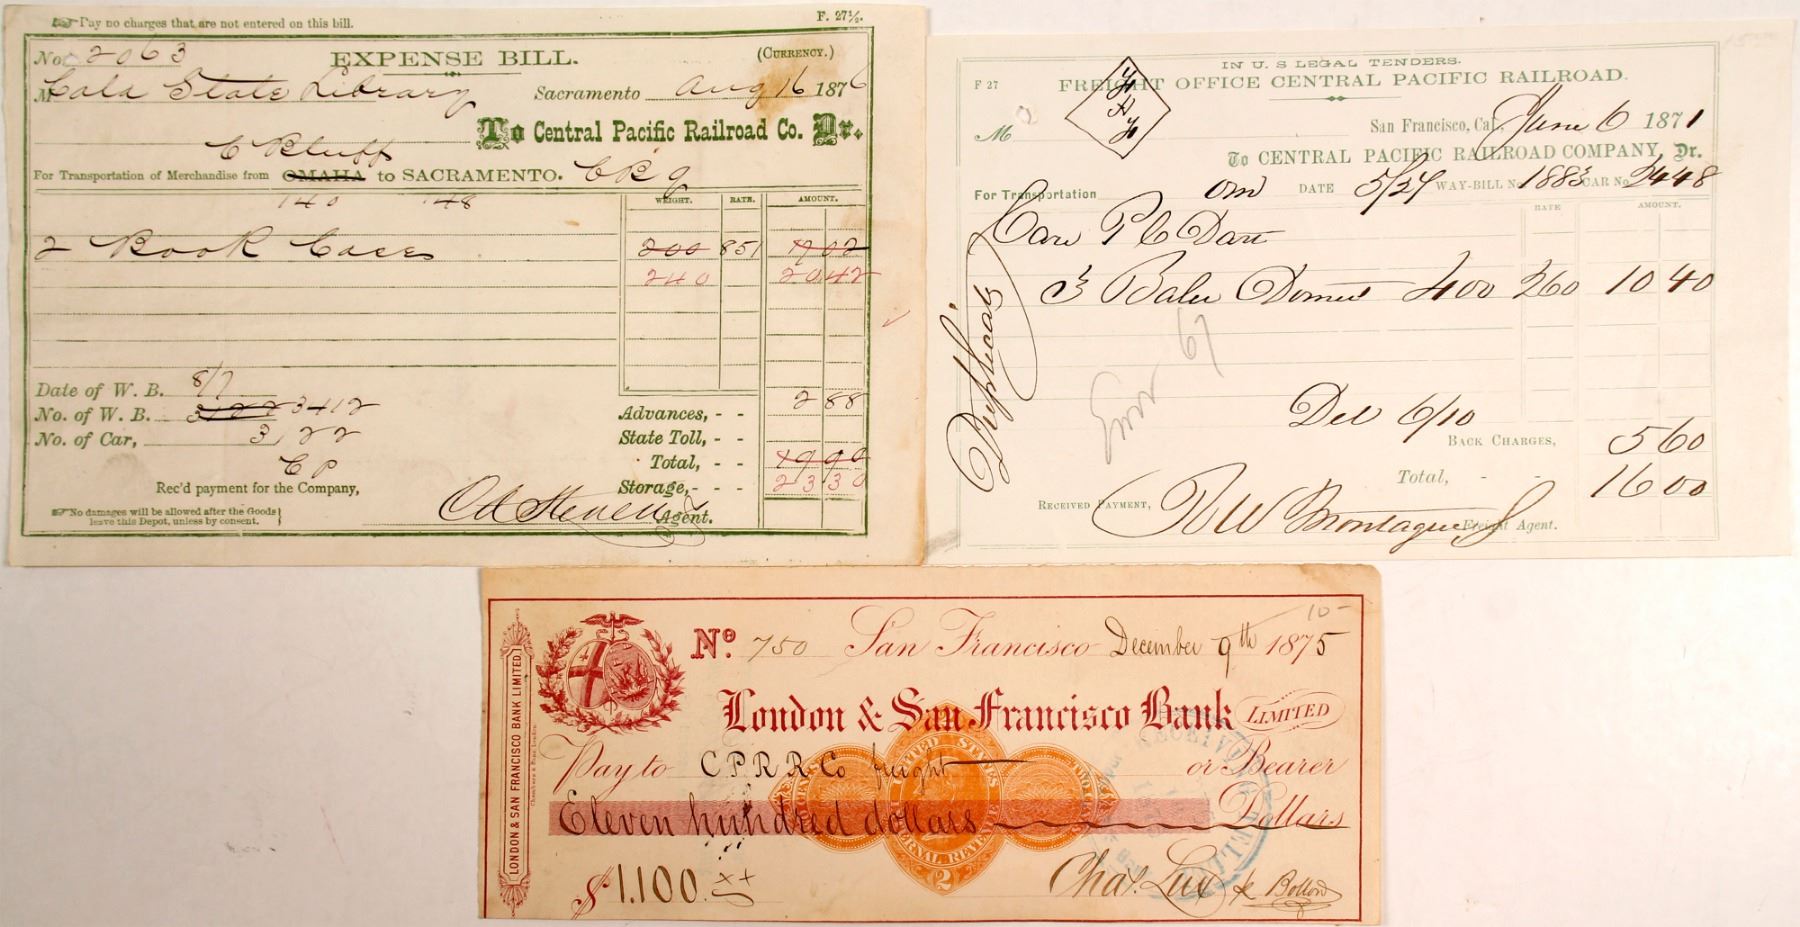 Pay no charges that are not entered on this bill.
F. 27½.
No. 2063
EXPENSE BILL.
(CURRENCY.)
M Cala State Library
Sacramento Aug 16 1876
To Central Pacific Railroad Co. Dr.
C Bluff
For Transportation of Merchandise from OMAHA to SACRAMENTO.
140 148
WEIGHT. RATE. AMOUNT.
2 Book Cases 200 851 17 02
240 20 42
Date of W. B. 8/7
No. of W. B. 3122 3412
No. of Car, 3122
CP
Advances, - - 2 88
State Toll, - -
Total, - - 19 90
Storage, - - - 23 30
Rec'd payment for the Company,
No damages will be allowed after the Goods leave this Depot, unless by consent.
Agent.
IN U. S LEGAL TENDERS.
F 27
FREIGHT OFFICE CENTRAL PACIFIC RAILROAD.
M
San Francisco, Cal, June 6 1871
To CENTRAL PACIFIC RAILROAD COMPANY, Dr.
For Transportation Om DATE 5/27 WAY-BILL No. 1883 CAR No. 2448
RATE AMOUNT.
Care P C Dart
3 Bales Domes 400 260 10 40
Duplicate
67
Del 6/10
BACK CHARGES, 5 60
Total, - - 16 00
RECEIVED PAYMENT, R W Montague
Freight Agent.
10-
No. 750 San Francisco December 9th 1875
LONDON & SAN FRANCISCO BANK LIMITED
London & San Francisco Bank LIMITED
Pay to C P R R Co freight or Bearer
Eleven hundred dollars Dollars
$1.100 xx
UNITED STATES
INTERNAL REVENUE
TWO CENTS
2
RECEIVED
Chas. Lux &